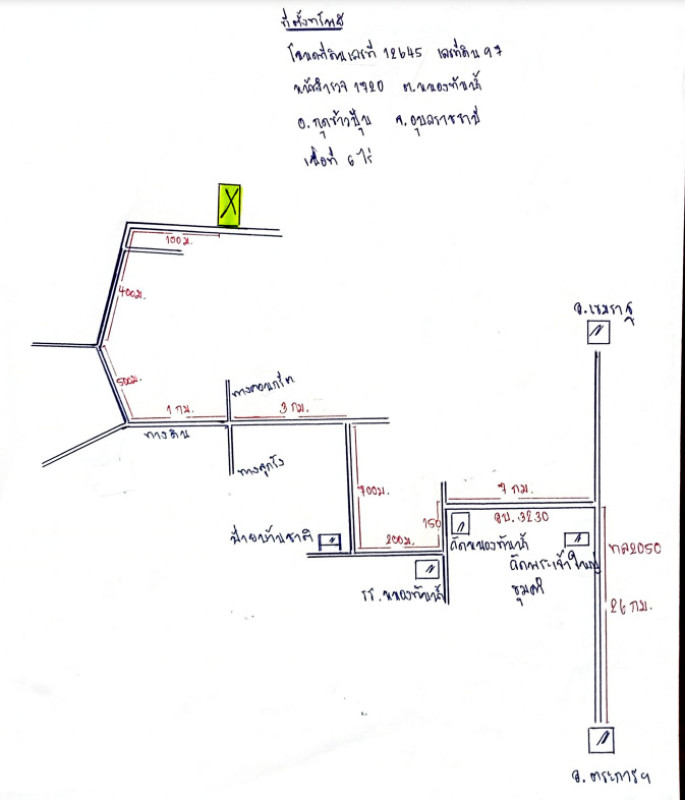 ที่ตั้งทรัพย์
โฉนดที่ดินเลขที่ 12645 เลขที่ดิน 97
หน้าสำรวจ 1720 ต.หนองทันน้ำ
อ.กุดข้าวปุ้น จ.อุบลราชธานี
เนื้อที่ 6 ไร่
X
100ม.
400ม.
อ.เขมราฐ
500ม.
ทางคอนกรีต
1 กม.
3 กม.
ทางดิน
ทางลูกรัง
700ม.
7 กม.
150
อบ.3230
200ม.
วัดหนองทันน้ำ
ทล2050
วัดพระเจ้าใหญ่
ชุมคำ
รร.หนองทันน้ำ
26 กม.
อ.ตระการฯ